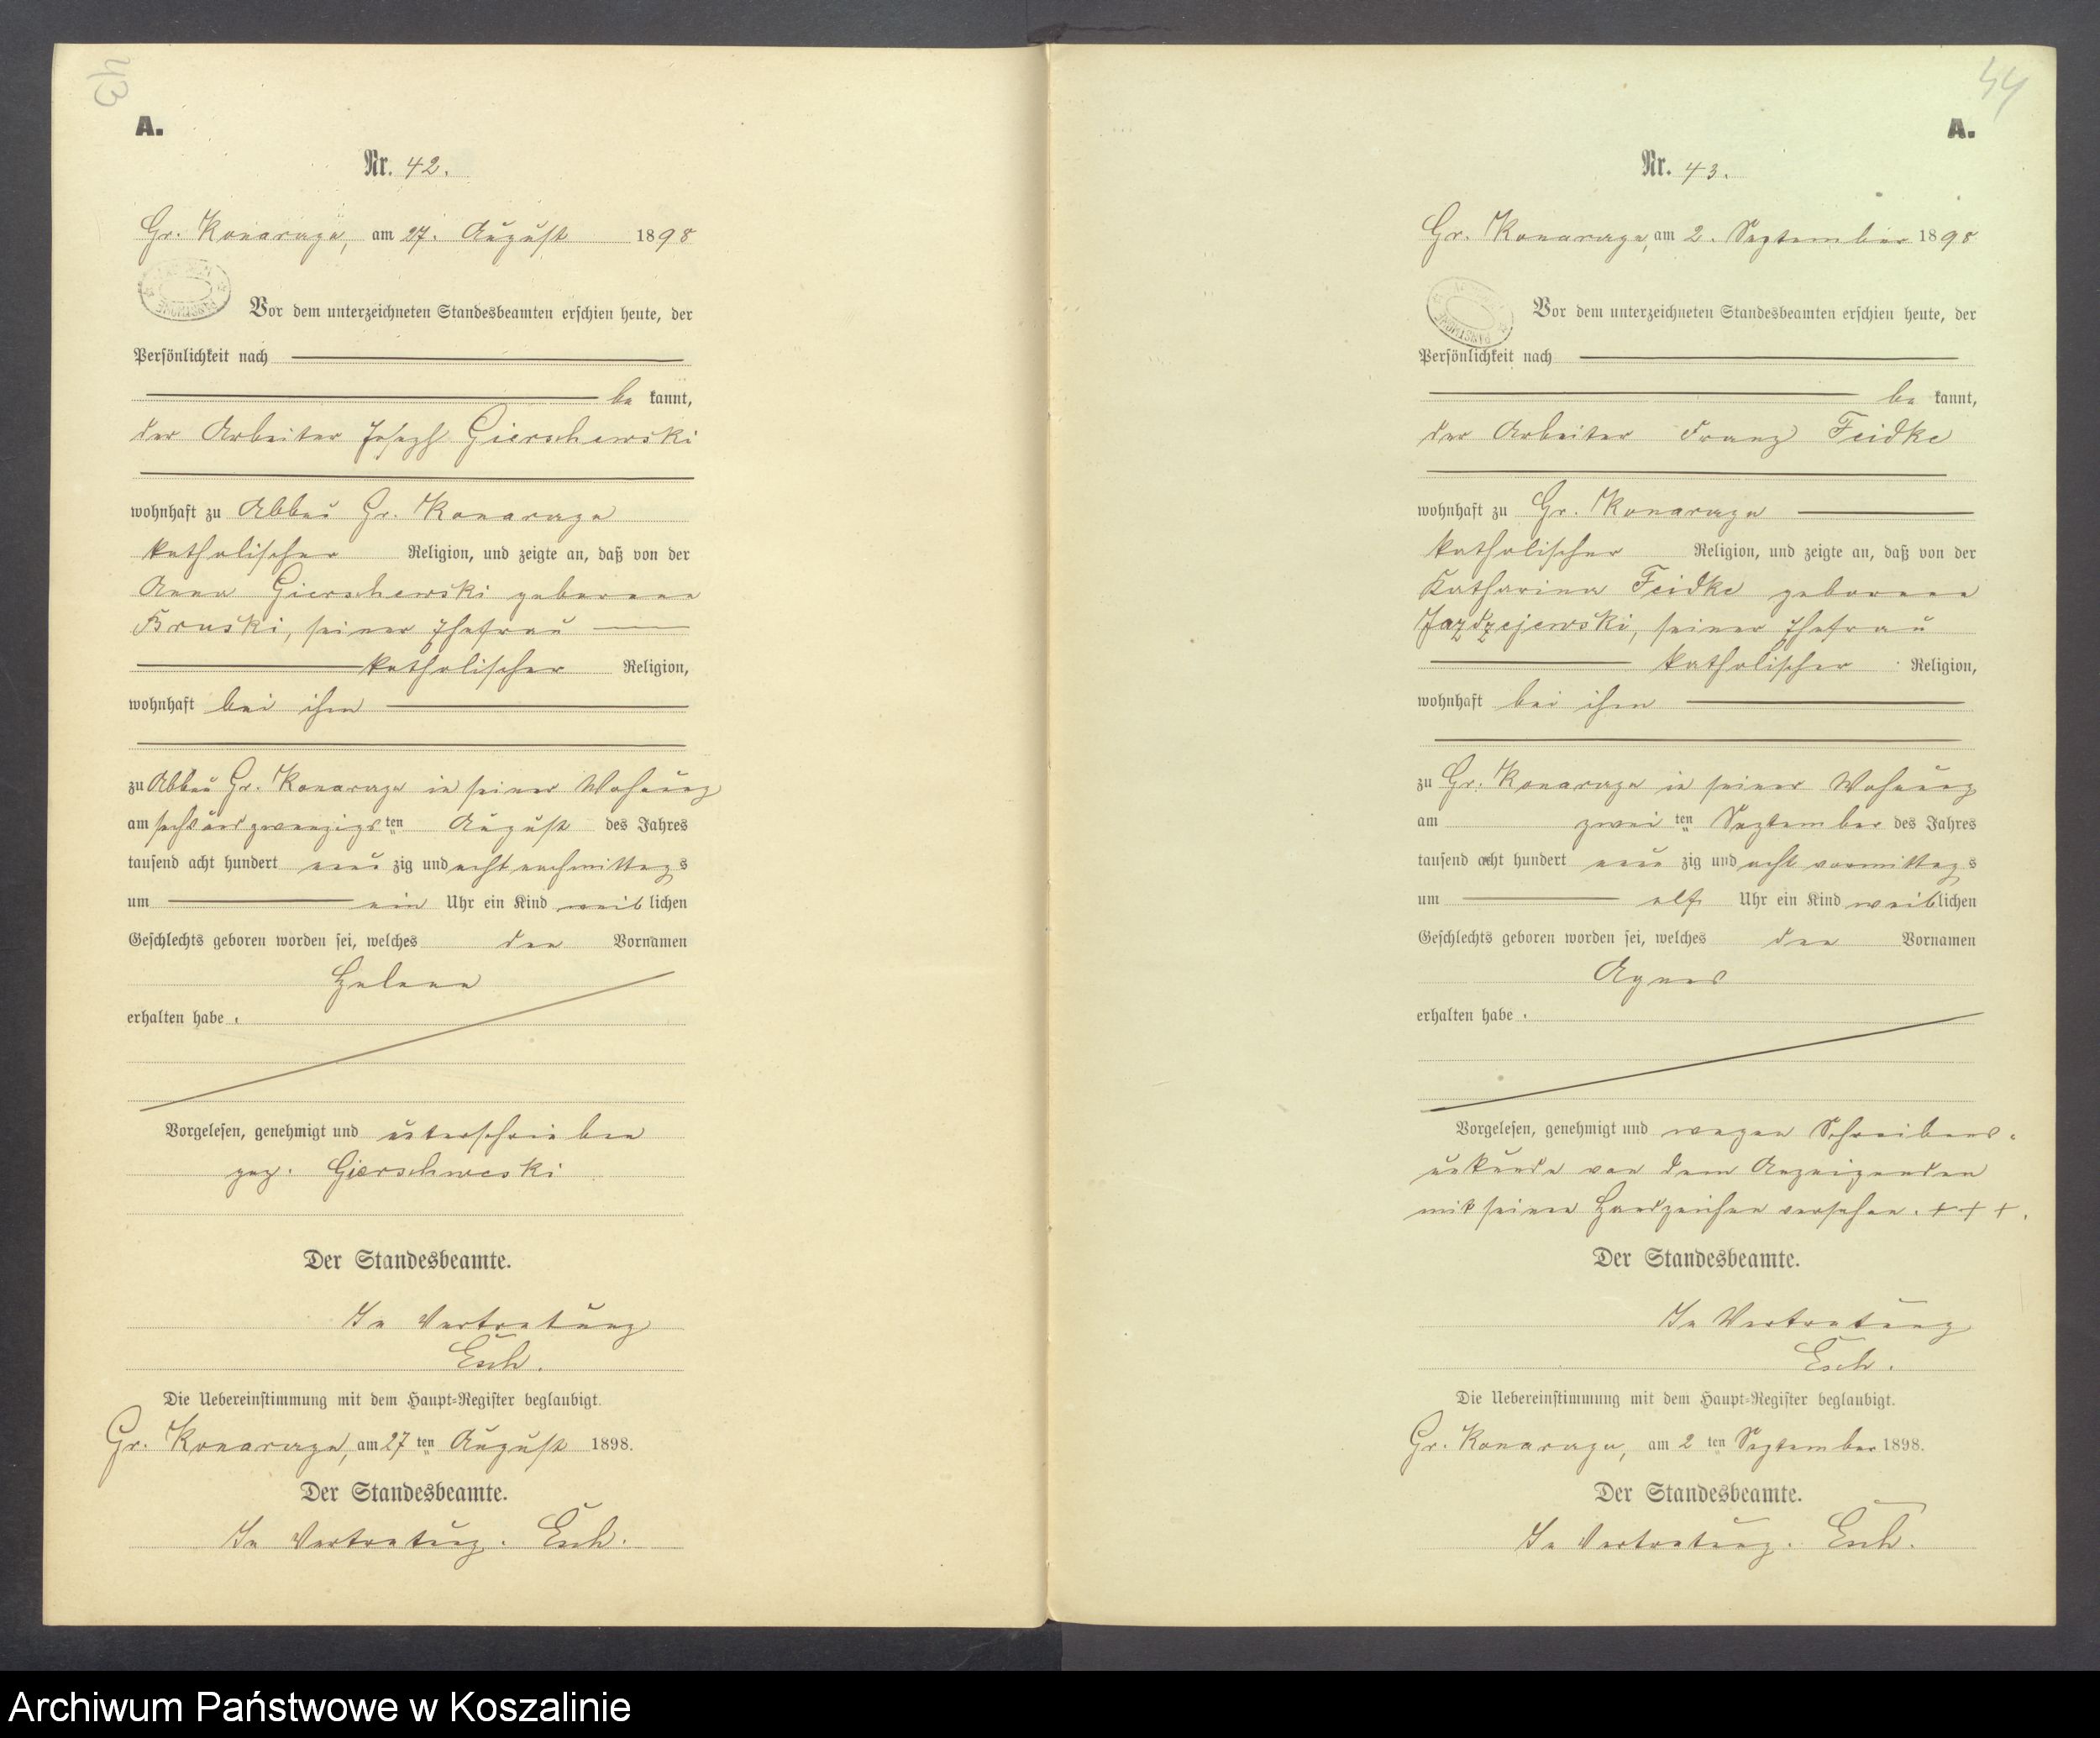 43
A.
Nr. 42.
Gr. Konarzyn, am 27. August 1898
Vor dem unterzeichneten Standesbeamten erschien heute, der
Persönlichkeit nach
be kannt,
der Arbeiter Joseph Gierschewski
wohnhaft zu Abbau Gr. Konarzyn
katholischer Religion, und zeigte an, daß von der
Anna Gierschewski geborene
Bruski, seiner Ehefrau
katholischer Religion,
wohnhaft bei ihm
zu Abbau Gr. Konarzyn in seiner Wohnung
am sechsundzwanzigsten August des Jahres
tausend acht hundert neun zig und acht nachmittags
um ein Uhr ein Kind weiblichen
Geschlechts geboren worden sei, welches den Vornamen
Helene
erhalten habe.
Vorgelesen, genehmigt und unterschrieben
gez. Gierschweski
Der Standesbeamte.
In Vertretung
Esch.
Die Uebereinstimmung mit dem Haupt-Register beglaubigt.
Gr. Konarzyn, am 27ten August 1898.
Der Standesbeamte.
In Vertretung. Esch.
44
A.
Nr. 43.
Gr. Konarzyn, am 2. September 1898
Vor dem unterzeichneten Standesbeamten erschien heute, der
Persönlichkeit nach
be kannt,
der Arbeiter Franz Feidke
wohnhaft zu Gr. Konarzyn
katholischer Religion, und zeigte an, daß von der
Katharina Feidke geborene
Jazdzejewski, seiner Ehefrau
katholischer Religion,
wohnhaft bei ihm
zu Gr. Konarzyn in seiner Wohnung
am zwei ten September des Jahres
tausend acht hundert neun zig und acht vormittags
um elf Uhr ein Kind weiblichen
Geschlechts geboren worden sei, welches den Vornamen
Agnes
erhalten habe.
Vorgelesen, genehmigt und wegen Schreibens-
unkunde von dem Anzeigenden
mit seinen Handzeichen versehen. + + +.
Der Standesbeamte.
In Vertretung
Esch.
Die Uebereinstimmung mit dem Haupt-Register beglaubigt.
Gr. Konarzyn, am 2 ten September 1898.
Der Standesbeamte.
In Vertretung. Esch.
Archiwum Państwowe w Koszalinie